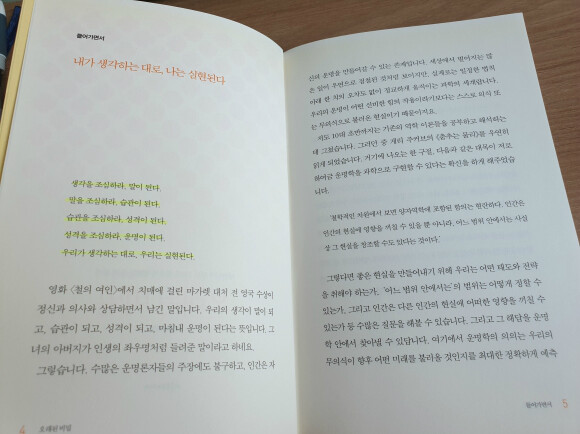 들어가면서
내가 생각하는 대로, 나는 실현된다
생각을 조심하라, 말이 된다.
말을 조심하라, 습관이 된다.
습관을 조심하라, 성격이 된다.
성격을 조심하라, 운명이 된다.
우리가 생각하는 대로, 우리는 실현된다.
영화 〈철의 여인〉에서 치매에 걸린 마가렛 대처 전 영국 수상이
정신과 의사와 상담하면서 남긴 말입니다. 우리의 생각이 말이 되
고, 습관이 되고, 성격이 되고, 마침내 운명이 된다는 뜻입니다. 그
녀의 아버지가 인생의 좌우명처럼 들려준 말이라고 하네요.
그렇습니다. 수많은 운명론자들의 주장에도 불구하고, 인간은 자
4
오래된 비밀
신의 운명을 만들어갈 수 있는 존재입니다. 세상에서 벌어지는 많
은 일이 우연으로 점철된 것처럼 보이지만, 실제로는 일정한 법칙
아래 한 치의 오차도 없이 정교하게 움직이는 과학의 세계랍니다.
우리의 운명이 어떤 신비한 힘의 작동이라기보다는 스스로 의식 또
는 무의식으로 불러온 현실이기 때문이지요.
저도 10대 초반까지는 기존의 역학 이론들을 공부하고 해석하는
데 그쳤습니다. 그러던 중 게리 주커브의 《춤추는 물리》를 우연히
읽게 되었습니다. 거기에 나오는 한 구절, 다음과 같은 대목이 저로
하여금 운명학을 과학으로 구현할 수 있다는 확신을 하게 해주었습
니다.
'철학적인 차원에서 보면 양자역학에 포함된 함의는 현란하다. 인간은
인간의 현실에 영향을 끼칠 수 있을 뿐 아니라, 어느 범위 안에서는 사실
상 그 현실을 창조할 수도 있다는 것이다.'
그렇다면 좋은 현실을 만들어내기 위해 우리는 어떤 태도와 전략
을 취해야 하는가, '어느 범위 안에서는'의 범위는 어떻게 정할 수
있는가, 그리고 인간은 다른 인간의 현실에 어떠한 영향을 끼칠 수
있는가 등 수많은 질문을 해볼 수 있습니다. 그리고 그 해답을 운명
학 안에서 찾아낼 수 있답니다. 여기에서 운명학의 의의는 우리의
무의식이 향후 어떤 미래를 불러올 것인지를 최대한 정확하게 예측
들어가면서
5